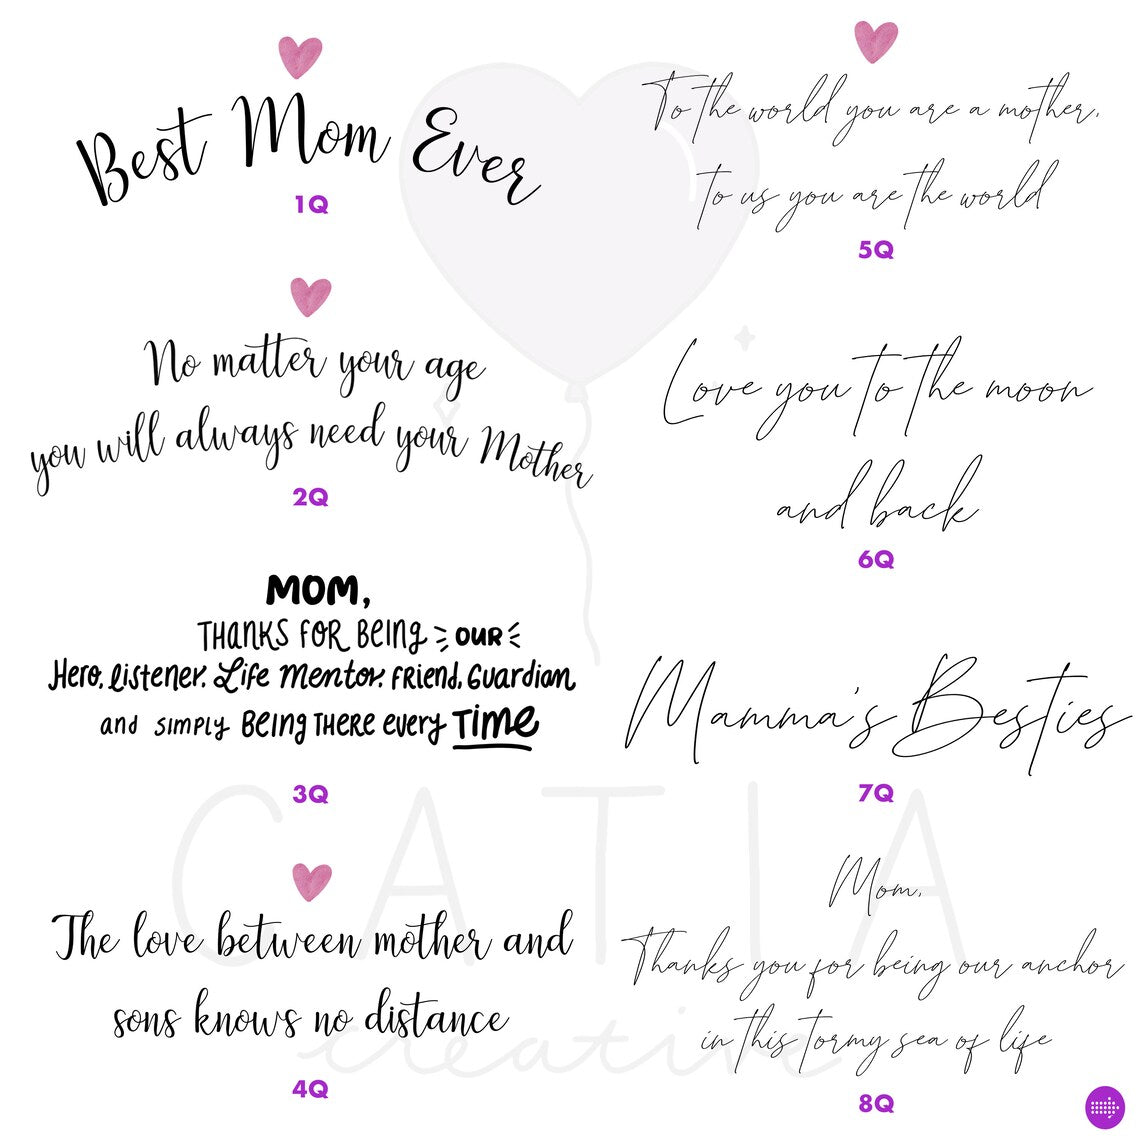 Best Mom Ever
1Q
No matter your age
you will always need your Mother
2Q
MOM,
THANKS FOR BEING OUR
Hero, listener, Life Mentor, Friend, Guardian,
and simply BEING THERE every Time
3Q
The love between mother and
sons knows no distance
4Q
To the world you are a mother,
to us you are the world
5Q
Love you to the moon
and back
6Q
Mamma's Besties
7Q
Mom,
Thanks you for being our anchor
in this tormy sea of life
8Q
CATIA
creative